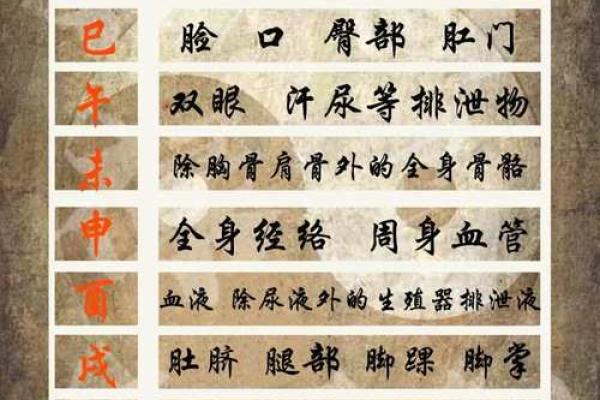 巳 脸 口 臀部 肛门
午 双眼 汗尿等排泄物
未 除胸骨肩骨外的全身骨骼
申 全身经络 周身血管
酉 血液 除尿液外的生殖器排泄液
戌 肚脐 腿部 脚踝 脚掌